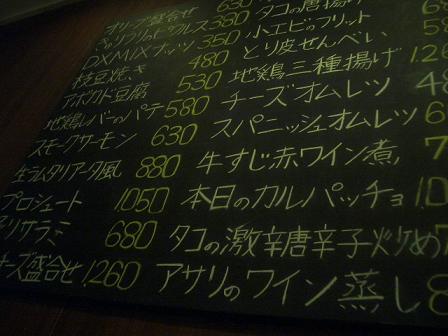 オリーブ盛合せ
ピクルス 380
DXMIXナッツ 350
枝豆焼き 480
アボカド豆腐 530
地鶏レバーのパテ 580
スモークサーモン 630
生ラムタリアータ風 880
プロシュート 1050
サラミ 680
チーズ盛合せ 1,260
630
タコの唐揚げ
小エビのフリット
とり皮せんべい
地鶏三種揚げ
チーズオムレツ
スパニッシュオムレツ
牛すじ赤ワイン煮
本日のカルパッチョ
タコの激辛唐辛子炒め
アサリのワイン蒸し